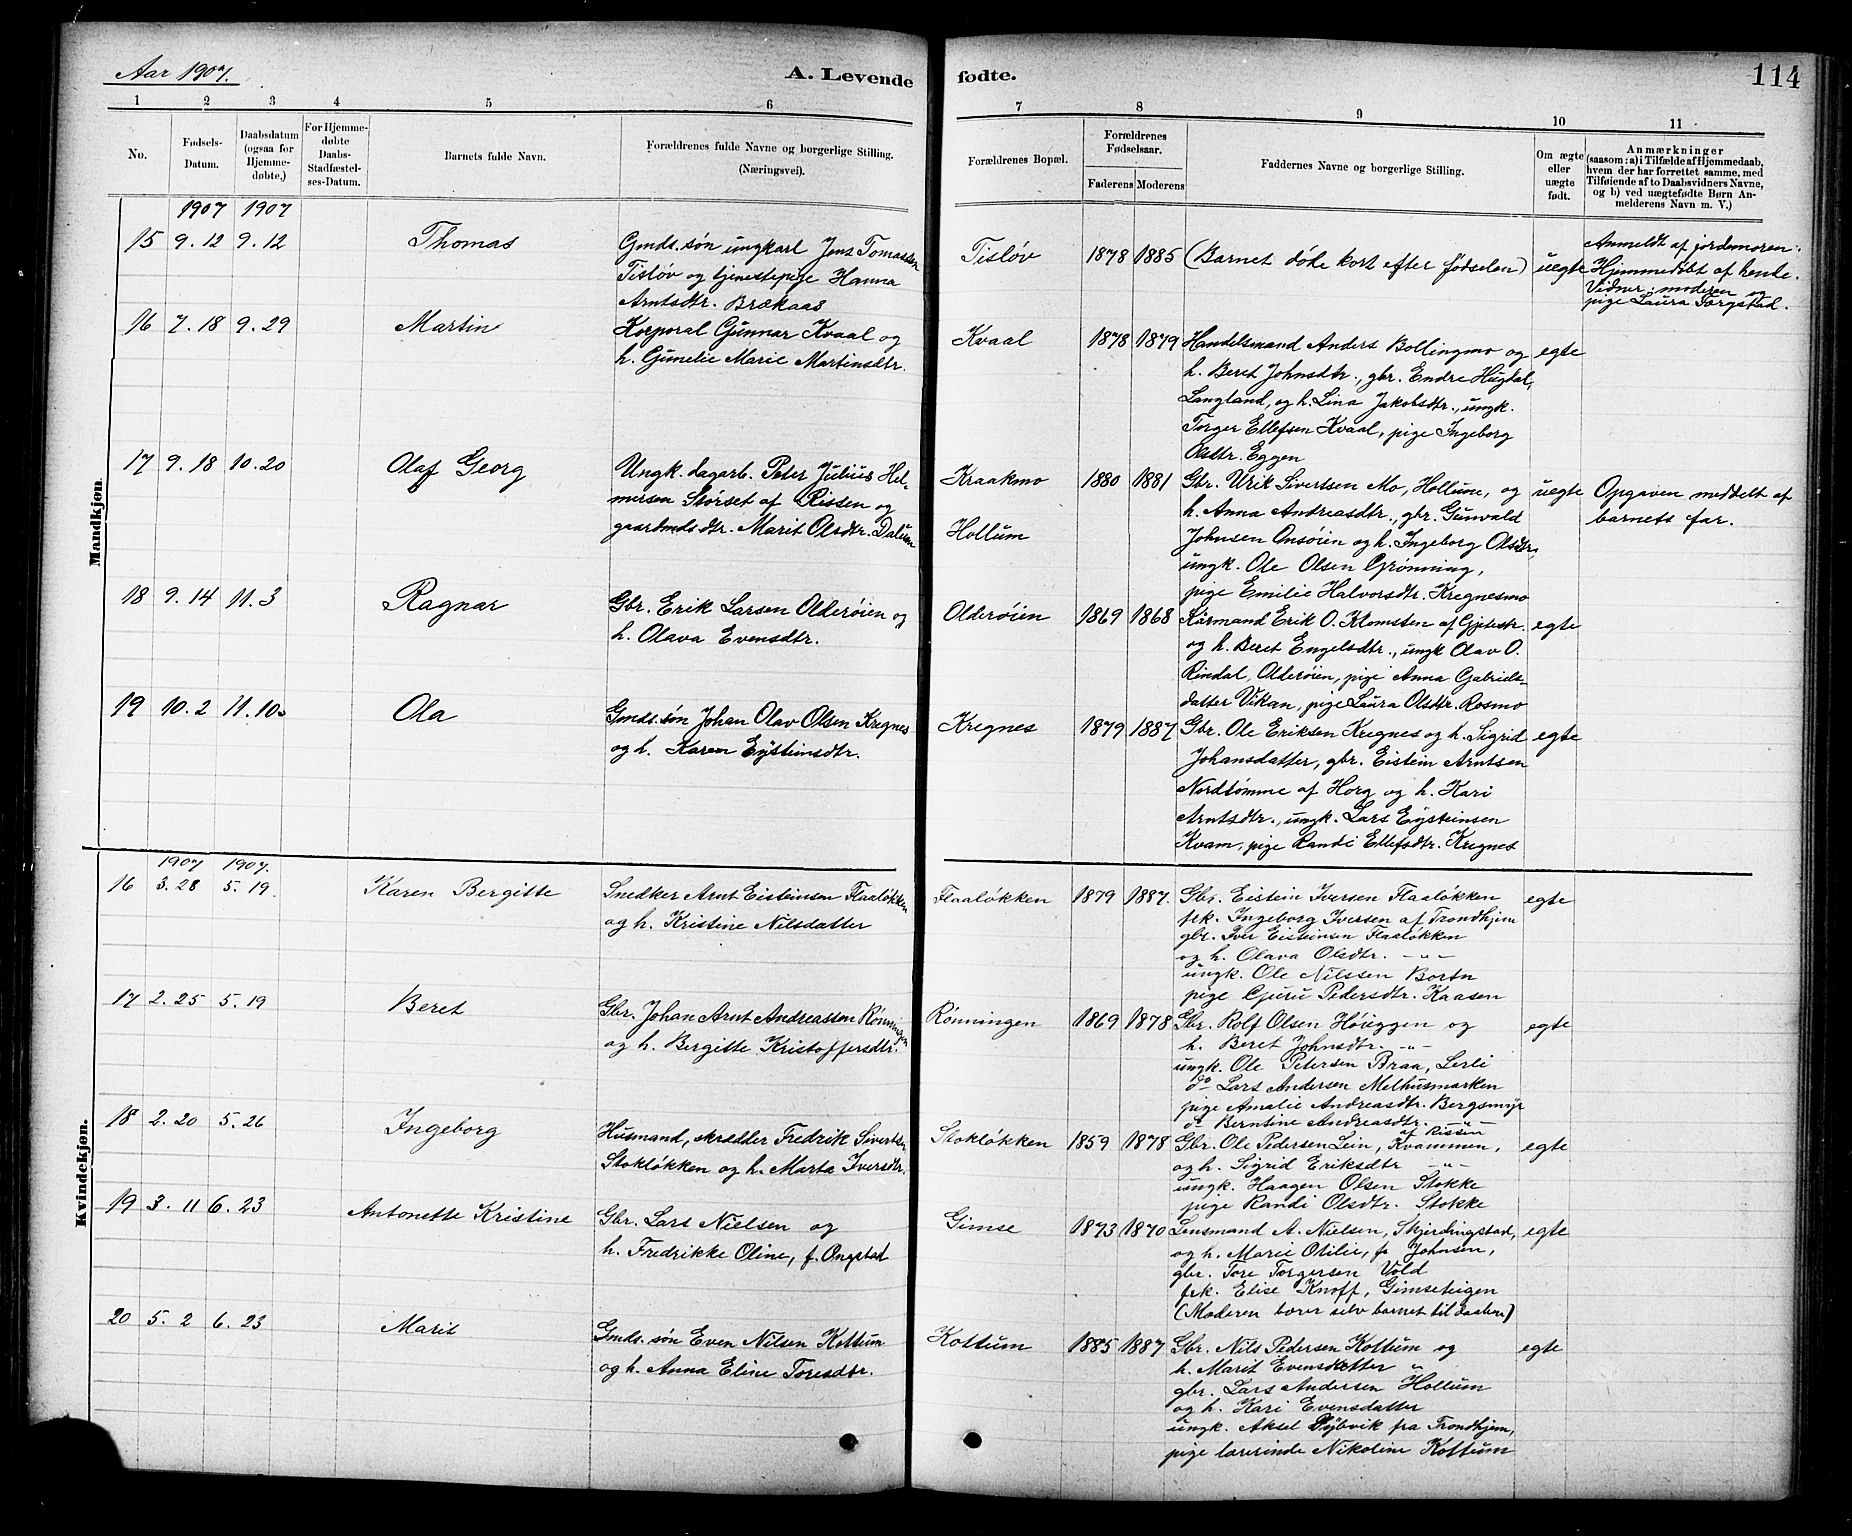 Aar 1907.
A. Levende fødte.
114
1 2 3 4 5 6 7 8 9 10 11
No.
Fødsels-
Datum.
Daabsdatum
(ogsaa for
Hjemme-
døbte.)
For Hjemme-
døbte
Daabs-
Stadfæstel-
ses-Datum.
Barnets fulde Navn.
Forældrenes fulde Navne og borgerlige Stilling.
(Næringsvei).
Forældrenes Bopæl.
Forældrenes
Fødselsaar.
Faderens Moderens
Faddernes Navne og borgerlige Stilling.
Om ægte
eller
uægte
født.
Anmærkninger
(saasom: a) i Tilfælde af Hjemmedaab,
hvem der har forrettet samme, med
Tilføiende af to Daabsvidners Navne,
og b) ved uægtefødte Børn An-
melderens Navn m. V.)
Mandkjøn.
1907 1907
15 9.12 9.12 Thomas
Gmds. søn ungkarl Jens Tomassen
Tisløv og tjenestepige Hanna
Arntsdtr. Brækaas
Tisløv 1878 1885 (Barnet døde kort efter fødselen) uegte
Anmeldt af jordemoren.
Hjemmedøbt af hende.
Vidner: moderen og
pige Laura Torgstad.
16 7.18 9.29 Martin
Korporal Gunnar Kvaal og
h. Gunelie Marie Martinsdtr.
Kvaal 1878 1879
Handelsmand Anders Bollingmo og egte
h. Beret Johnsdtr., gbr. Endre Hugdal,
Langland, og h. Lina Jakobsdtr., ungk.
Torger Ellefsen Kvaal, pige Ingeborg
Olsdtr. Eggen
17 9.18 10.20 Olaf Georg
Ungk. dagarb. Peter Julius Hel-
mersen Størset af Rissen og
gaardmdsdtr. Marit Olsdtr. Dalum
Kraakmo
Hollum
1880 1881
Gbr. Urik Sivertsen Mo, Hollum, og uegte
h. Anna Andreasdtr., gbr. Gunvald
Johnsen Onsøien og h. Ingeborg Olsdtr.
ungk. Ole Olsen Grønning,
pige Emilie Halvorsdtr. Kregnesmo
Opgaven meddelt af
barnets far.
18 9.14 11.3 Ragnar
Gbr. Erik Larsen Olderøien og
h. Olava Evensdtr.
Olderøien 1869 1868
Kårmand Erik O. Klomsten af Gjetestr. egte
og h. Beret Engelsdtr., ungk Olav O.
Rindal, Olderøien, pige Anna Gabriels-
datter Vikan, pige Laura Olsdtr. Rosmo
19 10.2 11.10 Ola
Gmds. søn Johan Olav Olsen Kregnes
og h. Karen Eysteinsdtr.
Kregnes 1879 1887
Gbr. Ole Eriksen Kregnes og h. Sigrid egte
Johansdatter, gbr. Eistein Arntsen
Nordtømme af Horg og h. Kari
Arntsdtr., ungk. Lars Eysteinsen
Kvam, pige Randi Ellefsdtr. Kregnes
Kvindekjøn.
1907 1907.
16 3.28 5.19. Karen Bergitte
Snedker Arnt Eisteinsen Flaaløkken
og h. Kristine Nilsdatter
Flaaløkken 1879 1887.
Gbr. Eistein Iversen Flaaløkken egte
frk. Ingeborg Iversen af Trondhjem
gbr. Iver Eisteinsen Flaaløkken
og h. Olava Olsdtr. -"-
ungk. Ole Nilssen Bortn
pige Guru Pedersdtr. Kaasen
17 2.25 5.19 Beret
Gbr. Johan Arnt Andreassen Rønningen
og h. Bergitte Kristoffersdtr.
Rønningen 1869 1878
Gbr. Rolf Olsen Høiggen og egte
h. Beret Johnsdtr. -"-
ungk. Ole Petersen Braa, Lerli
do Lars Andersen Melhusmarken
pige Amalie Andreasdtr. Bergsmyr
do Berntine Andreasdtr. -"-
af Rissen
18 2.20 5.26 Ingeborg
Husmand, skrædder Fredrik Sivertsen
Stokløkken og h. Marta Iversdtr.
Stokløkken 1859 1878
Gbr. Ole Pedersen Lein, Kvammen, egte
og h. Sigrid Eriksdtr -"-
ungk. Haagen Olsen Stokke
pige Randi Olsdtr. Stokke
19 3.11 6.23 Antonette Kristine
Gbr. Lars Nielsen og
h. Fredrikke Oline, f. Ongstad
Gimse 1873 1870
Lensmand A. Nielsen, Skjerdingstad, egte
og h. Marie Otilie, f. Johnsen,
gbr. Tore Torgersen Vold
frk. Elise Knoff, Gimseteigen
(Moderen bærer selv barnet til daaben)
20 5.2 6.23 Marit
Gmds. søn Even Nilsen Kottum
og h. Anna Eline Toresdtr.
Kottum 1885 1887
Gbr. Nils Pedersen Kottum og egte
h. Marit Evensdatter "
gbr. Lars Andersen Hollum
og h. Kari Evensdatter
ungk. Aksel Dybvik fra Trondhjem,
pige lærerinde Nikoline Kottum